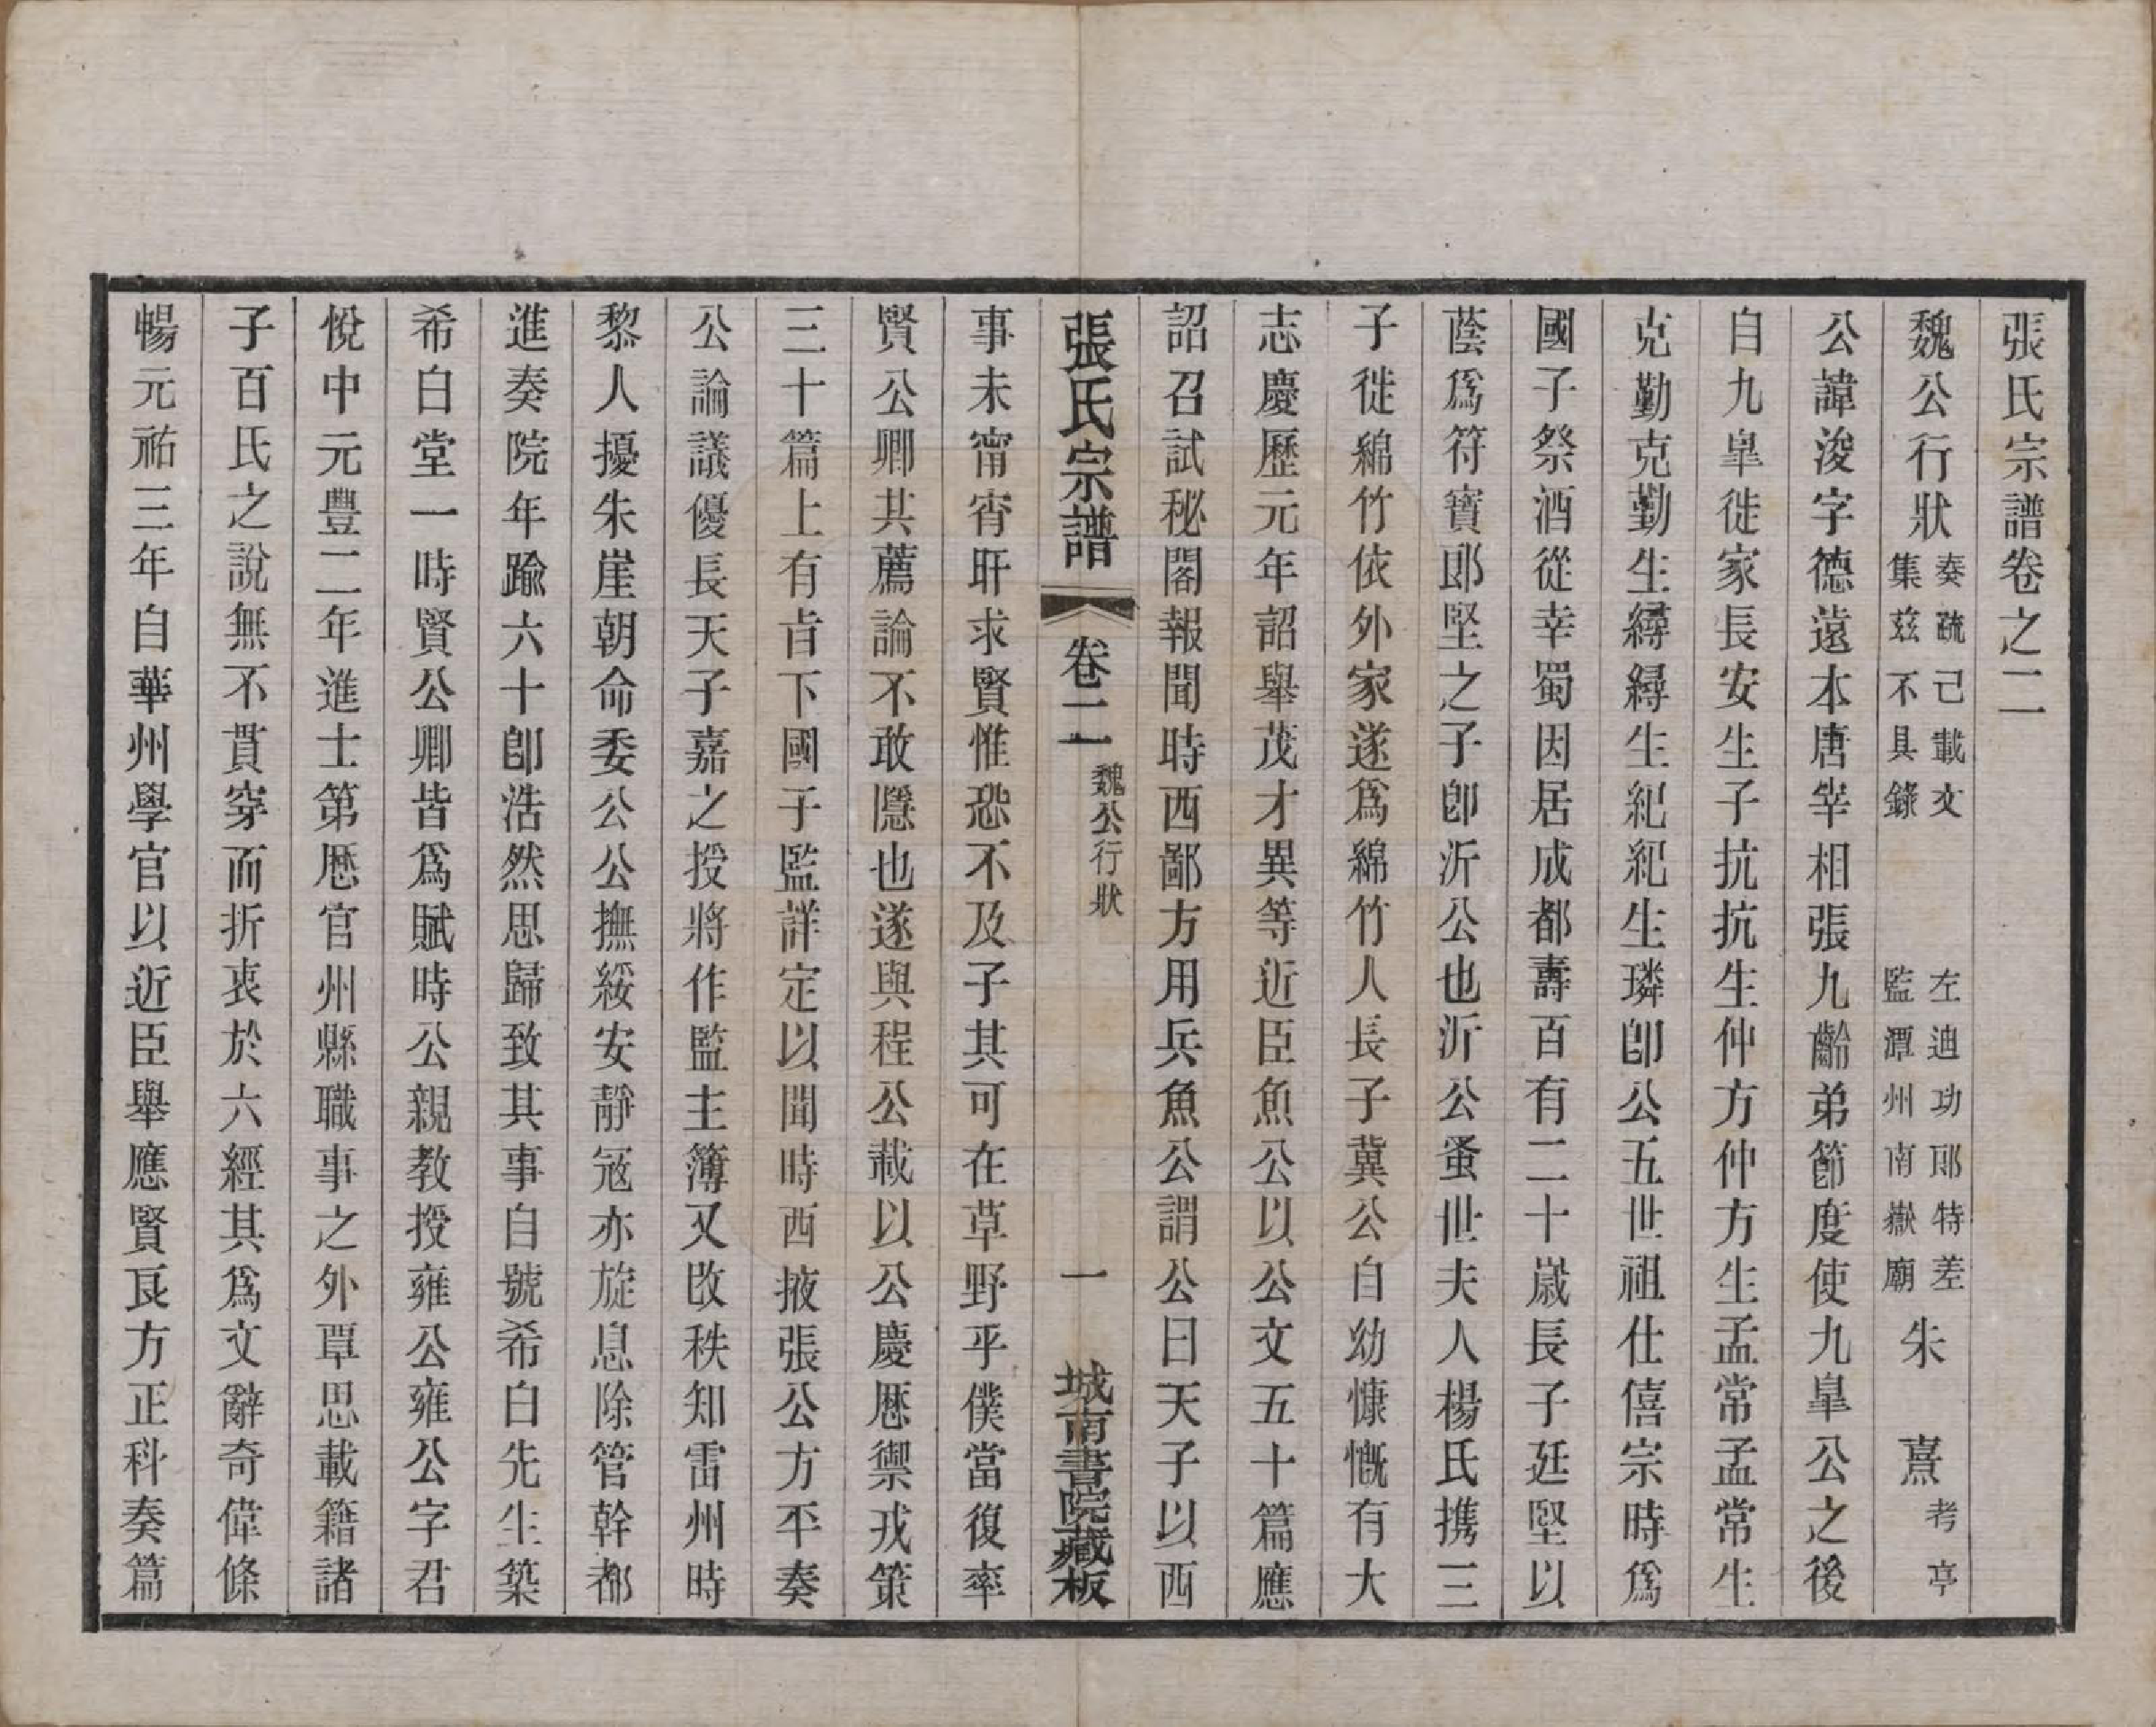 張氏宗譜卷之二
魏公行狀 奏疏已載文集茲不具錄 左迪功郎特差監潭州南嶽廟 朱熹 考亭
公諱浚字德遠本唐宰相張九齡弟節度使九皐公之後
自九皐徙家長安生子抗抗生仲方仲方生孟常孟常生
克勤克勤生縟縟生紀紀生璘卽公五世祖仕僖宗時爲
國子祭酒從幸蜀因居成都壽百有二十歲長子廷堅以
蔭爲符寶郎堅之子卽沂公也沂公蚤世夫人楊氏携三
子徙綿竹依外家遂爲綿竹人長子冀公自幼慷慨有大
志慶歷元年詔舉茂才異等近臣魚公以公文五十篇應
詔召試秘閣報聞時西鄙方用兵魚公謂公曰天子以西
張氏宗譜 卷二 魏公行狀 一 城南書院藏板
事未甯宵旰求賢惟恐不及子其可在草野乎僕當復率
賢公卿共薦論不敢隱也遂與程公戡以公慶厯禦戎策
三十篇上有旨下國子監詳定以聞時西掖張公方平奏
公論議優長天子嘉之授將作監主簿又改秩知雷州時
黎人擾朱崖朝命委公公撫綏安靜寇亦旋息除管幹都
進奏院年踰六十卽浩然思歸致其事自號希白先生築
希白堂一時賢公卿皆爲賦時公親教授雍公雍公字君
悅中元豐二年進士第厯官州縣職事之外覃思載籍諸
子百氏之說無不貫穿而折衷於六經其爲文辭奇偉條
暢元祐三年自華州學官以近臣舉應賢良方正科奏篇